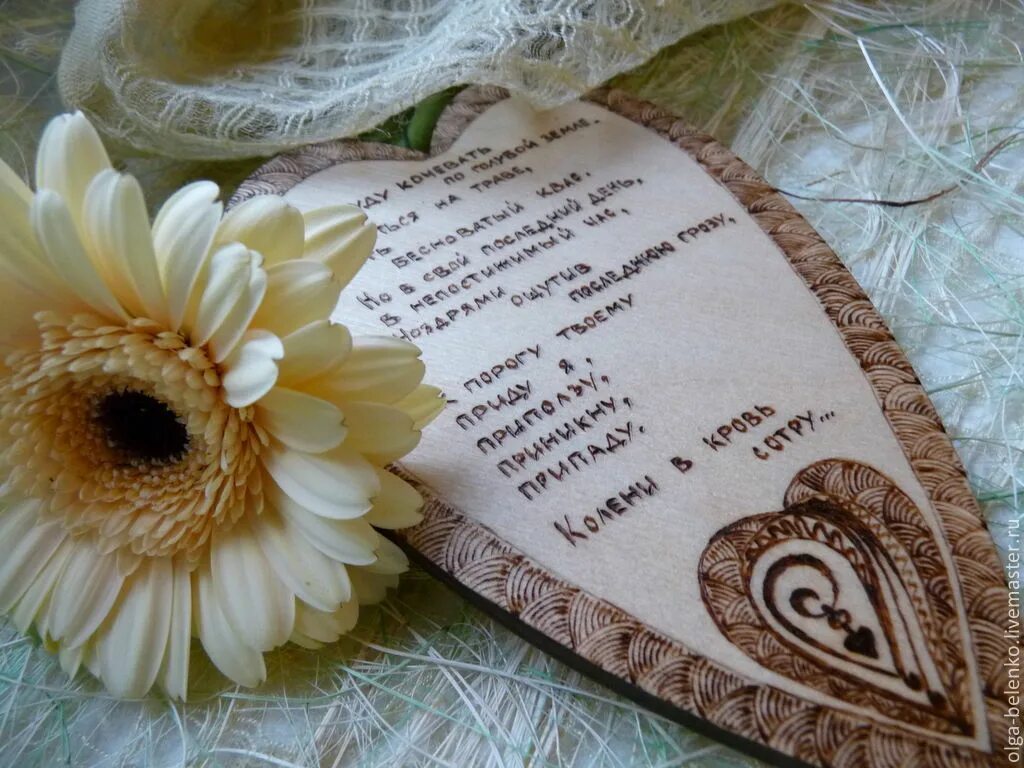 КОЧЕВАТЬ
ПО ГОЛУБОЙ ЗЕМЛЕ.
НА ТРАВЕ,
БЕСНОВАТЫЙ КВАС.
НО В СВОЙ ПОСЛЕДНИЙ ДЕНЬ,
В НЕПОСТИЖИМЫЙ ЧАС,
НОЗДРЯМИ ОЩУТИВ
ПОСЛЕДНЮЮ ГРОЗУ,
ПОРОГУ ТВОЕМУ
ПРИДУ Я,
ПРИПОЛЗУ,
ПРИНИКНУ,
ПРИПАДУ.
КОЛЕНИ В КРОВЬ
СОТРУ...
olga-belenko.livemaster.ru